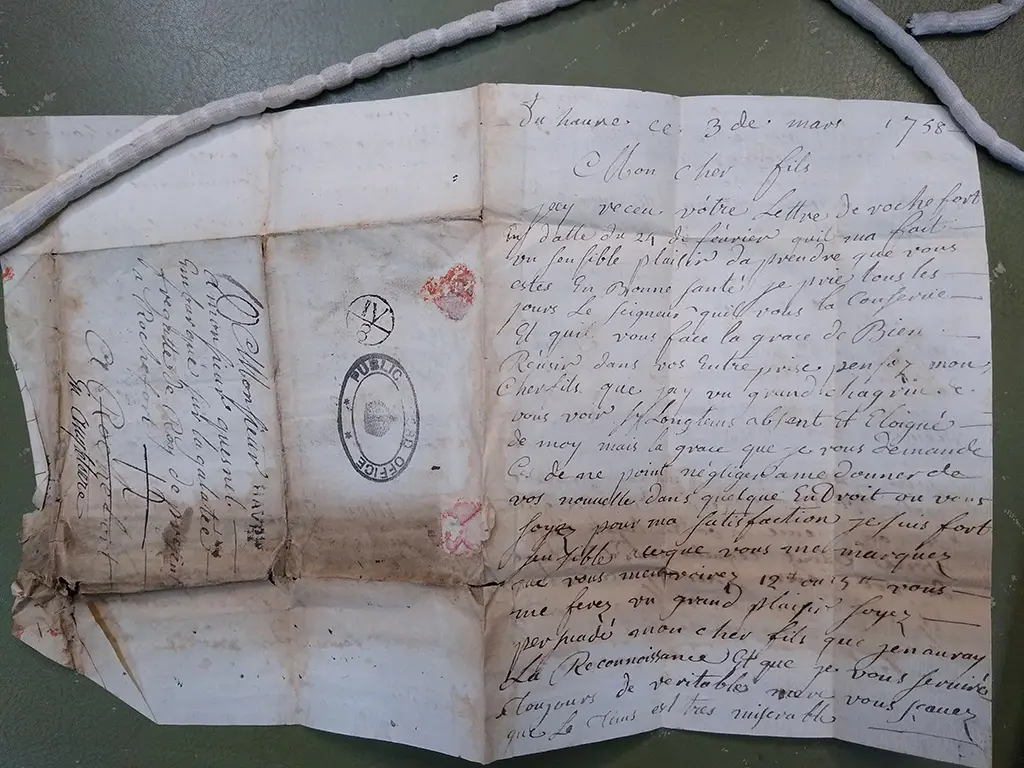 Du havre ce 3 de mars 1758
Mon cher fils
jay receu vôtre Lettre de rochefort
En datte du 24 de février quil ma fait
un sensible plaisir daprendre que vous
estes En Bonne santé je prie tous les
jours le seigneur quil vous la Conserve
Et quil vous face la grace de Bien
Réüsir dans vos Entreprise pensez mon
Cher fils que jay un grand chagrin de
vous voir sy Longtems absent Et Eloigné
de moy mais la grace que je vous demande
Ces de ne point négliger a me donner de
vos nouvelle dans quelque Endroit ou vous
soyez pour ma satisfaction je suis fort
sensible aceque vous me marquez
que vous menvoirez 12 ou 15 vous
me ferez un grand plaisir soyez
persuadé mon cher fils que jenauray
La Reconnoissance Et que je vous serviré
Toujours de veritable mere vous scavez
que Le Tems est tres miserable
A Monsieur
Monsieur quesnel
Embarqué sur la galatée
fregatte du Roy de présent
a Rochefort
A Rochefort
PUBLIC OFFICE